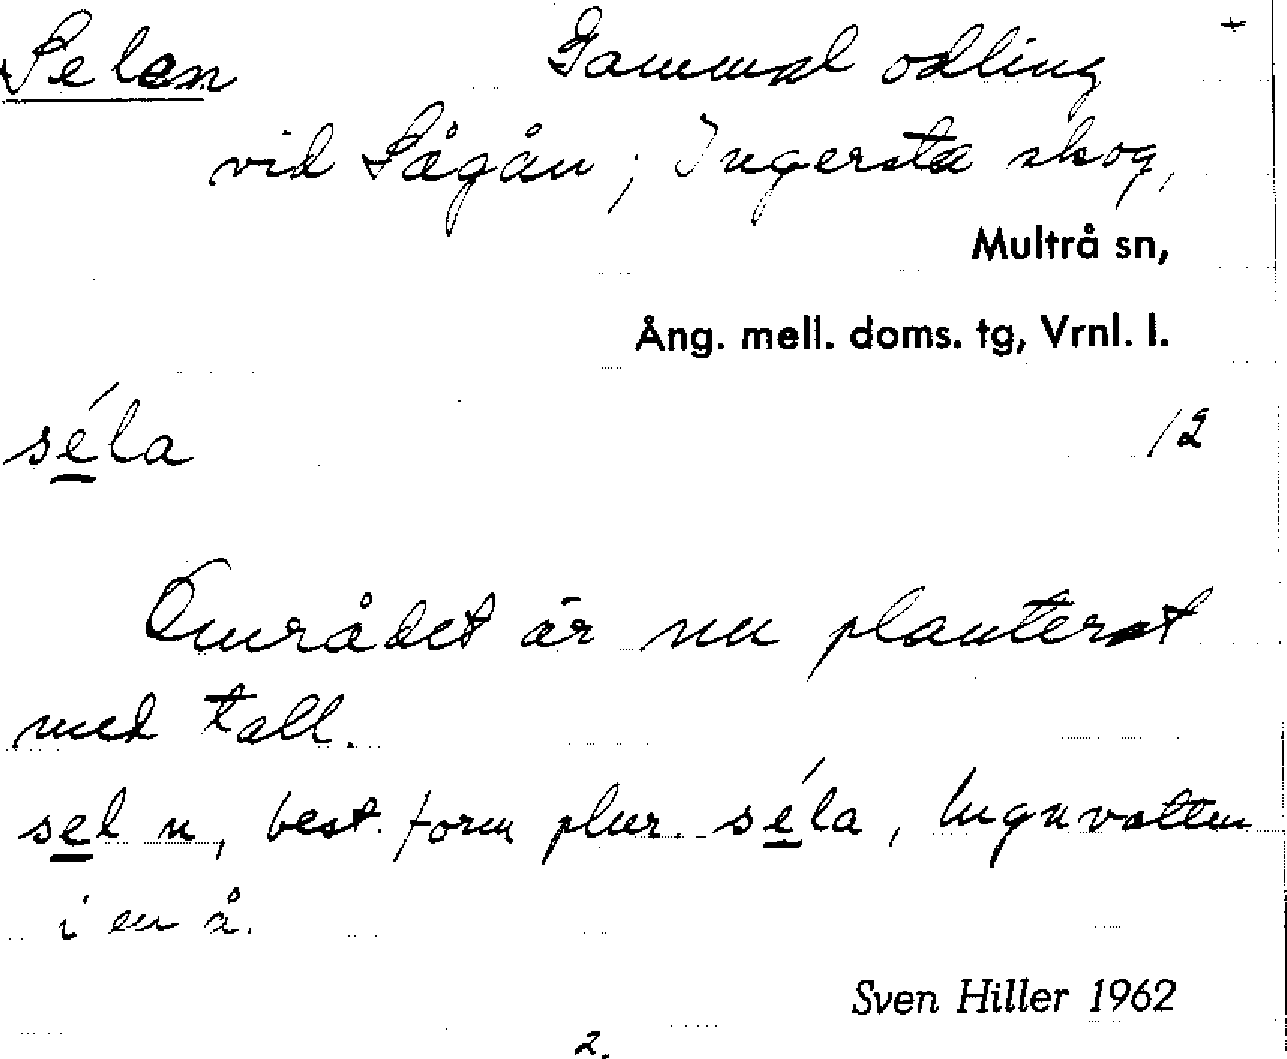 Selen Gammal odling +
vid Sågån; Ingersta skog,
Multrå sn,
Ång. mell. doms. tg, Vrnl. l.
séla /2
Området är nu planterat
med tall.
sel n, best. form plur. séla, lugnvatten
i en å.
Sven Hiller 1962
2.